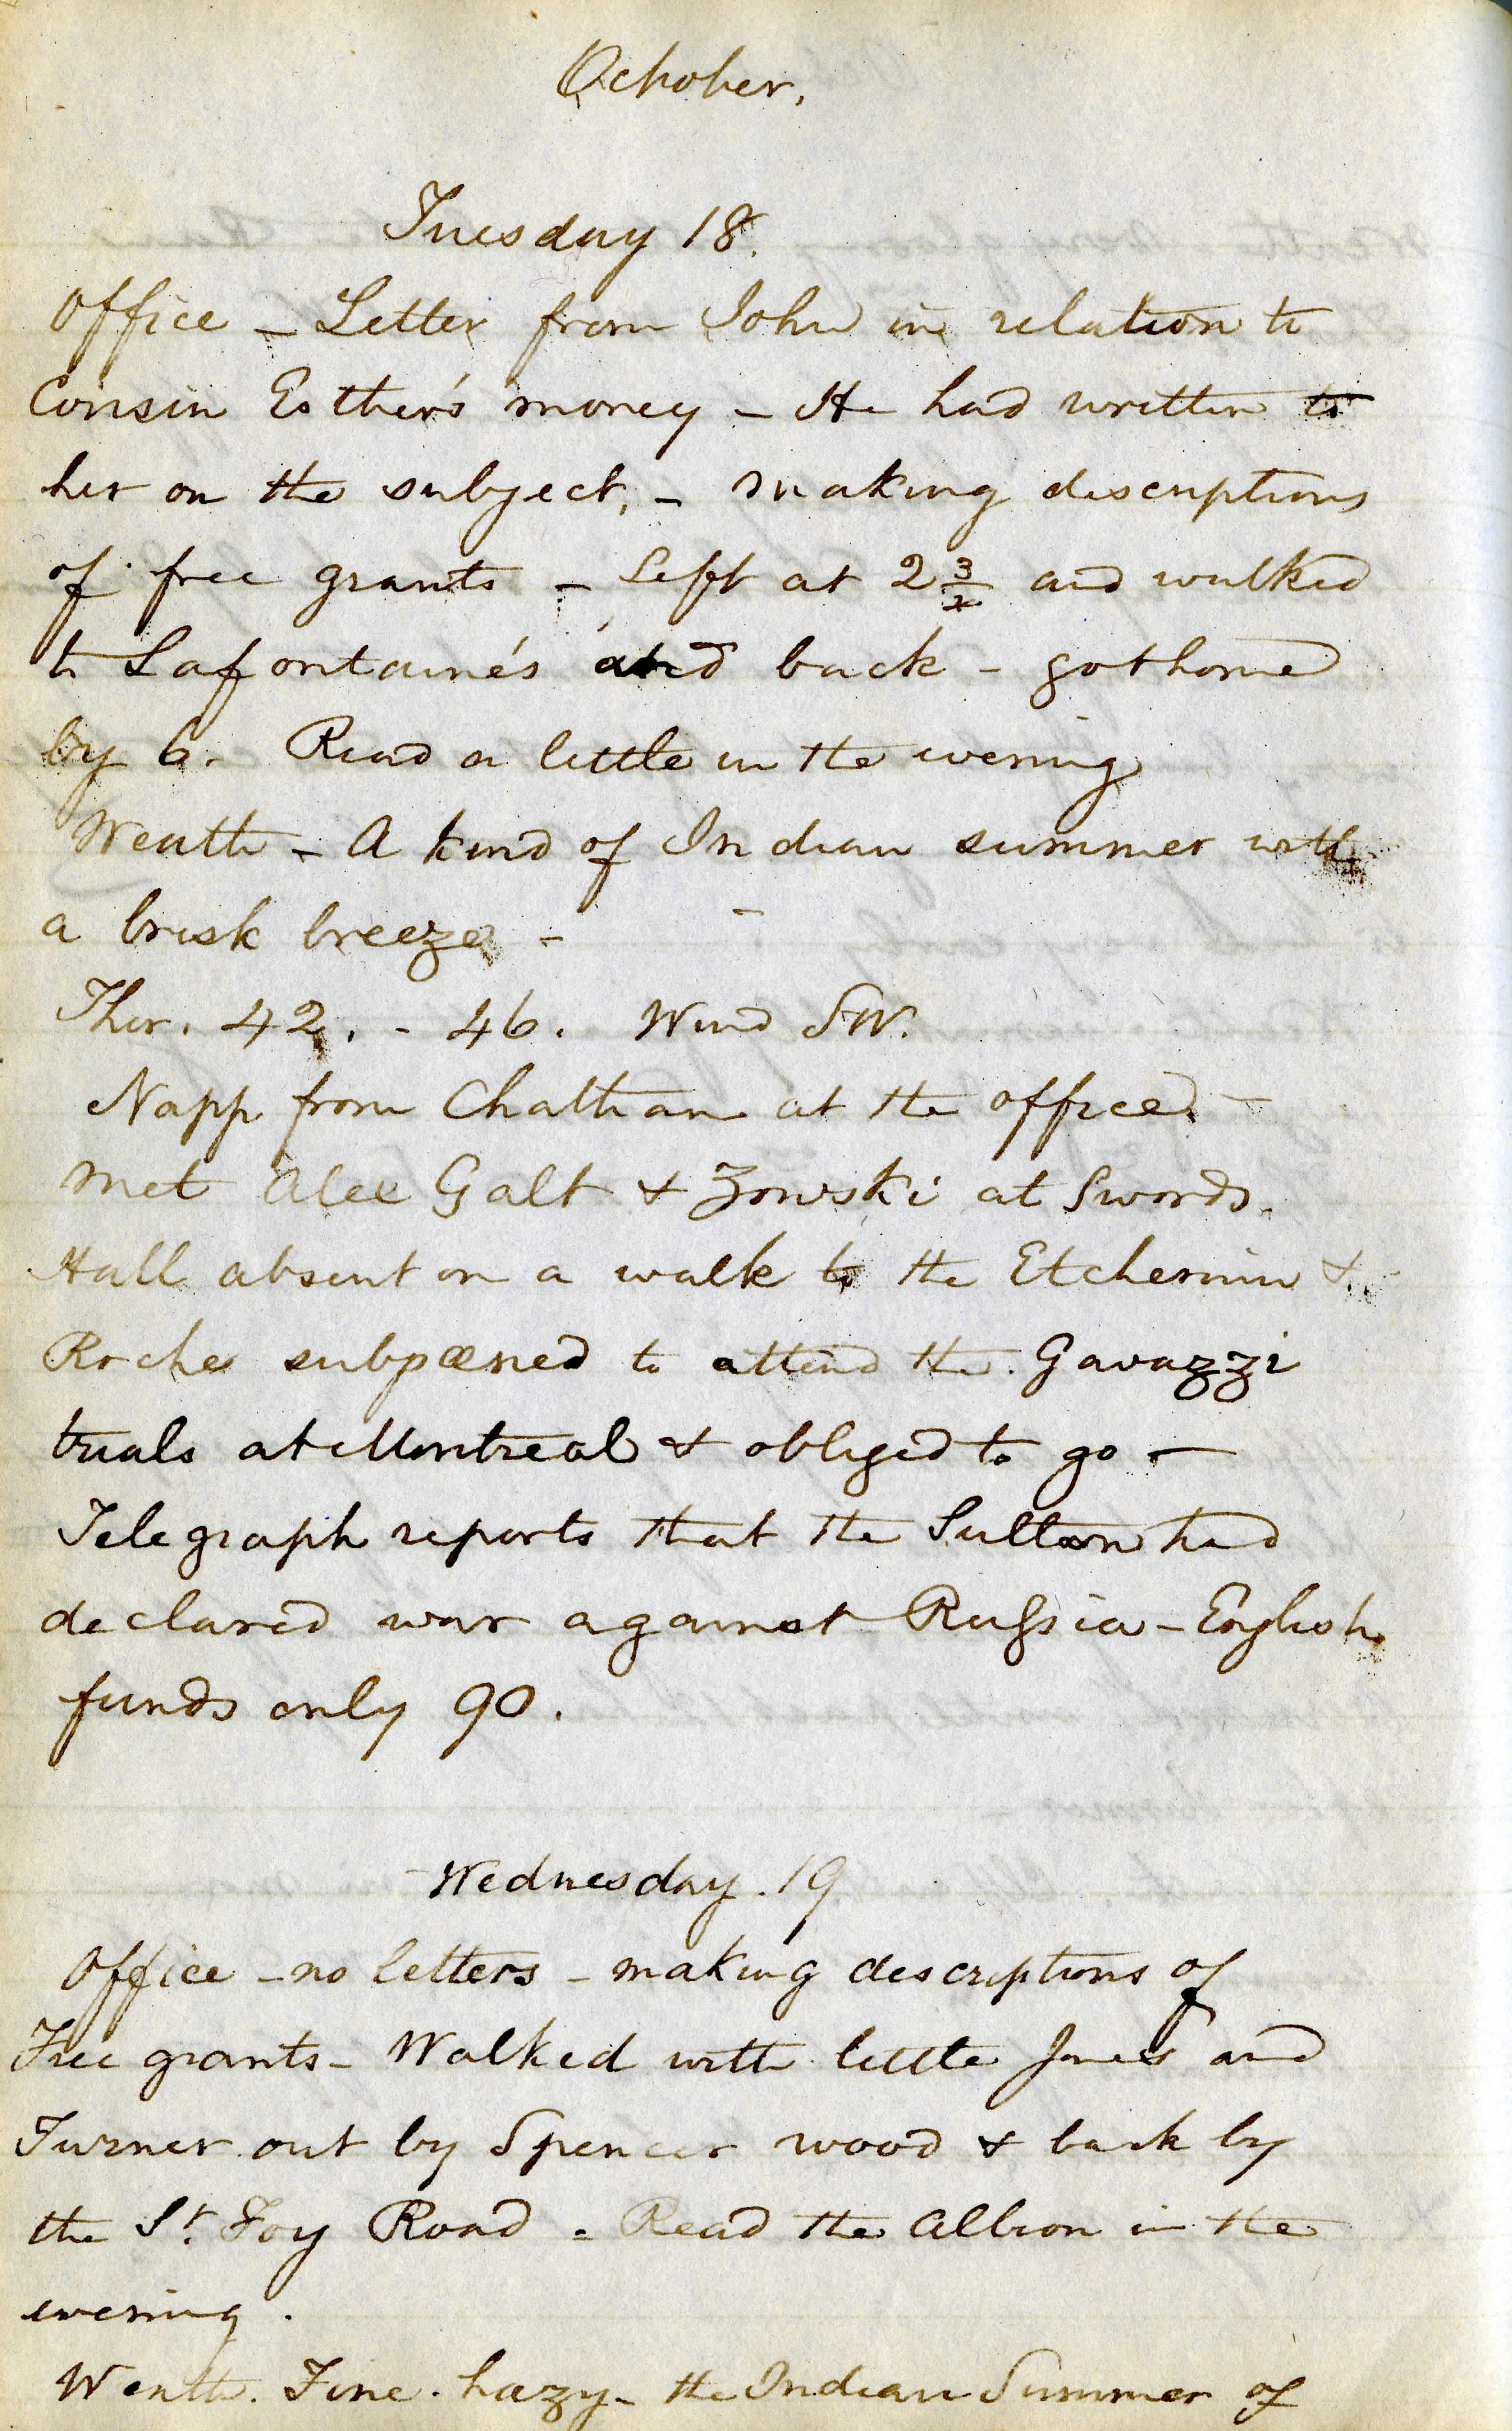 October.
Tuesday 18.
Office - Letter from John in relation to
Cousin Esther's money - He had written to
her on the subject, - making descriptions
of free grants - Left at 2 3/4 and walked
to Lafontaine's and back - got home
by 6. Read a little in the evening
Weath - A kind of Indian summer with
a brisk breeze -
Ther. 42. - 46. Wind SW.
Napp from Chatham at the office. -
met Alec Galt & Zowski at Swords.
Hall absent on a walk to the Etchemin &
Roche subpœned to attend the Gavazzi
trials at Montreal & obliged to go -
Telegraph reports that the Sultan had
declared war against Russia - English
funds only 90.
Wednesday. 19
Office - no letters - making descriptions of
Free grants - Walked with little Jones and
Turner out by Spencer wood & back by
the St. Foy Road - Read the Albion in the
evening.
Weath. Fine. hazy - the Indian Summer of